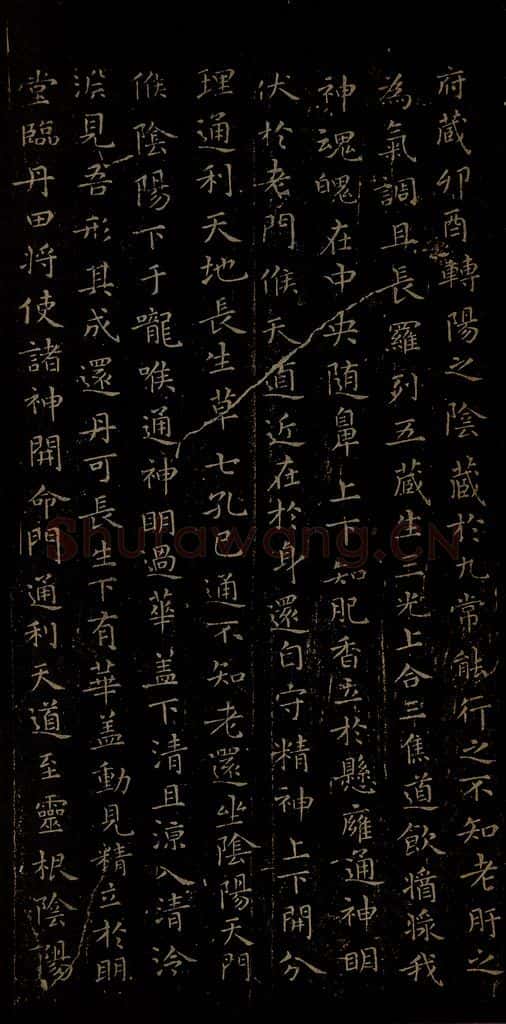 府藏卯酉轉陽之陰藏於九常能行之不知老肝之
為氣調且長羅列五藏生三光上合三焦道飲漿我
神魂魄在中央随鼻上下知肥香立於懸廱通神明
伏於老門候天道近在於身還自守精神上下開分
理通利天地長生草七孔已通不知老還坐陰陽天門
候陰陽下于嚨喉通神明過華蓋下清且涼入清泠
淵見吾形其成還丹可長生下有華蓋動見精立於明
堂臨丹田將使諸神開命門通利天道至靈根陰陽
Shufawang.CN